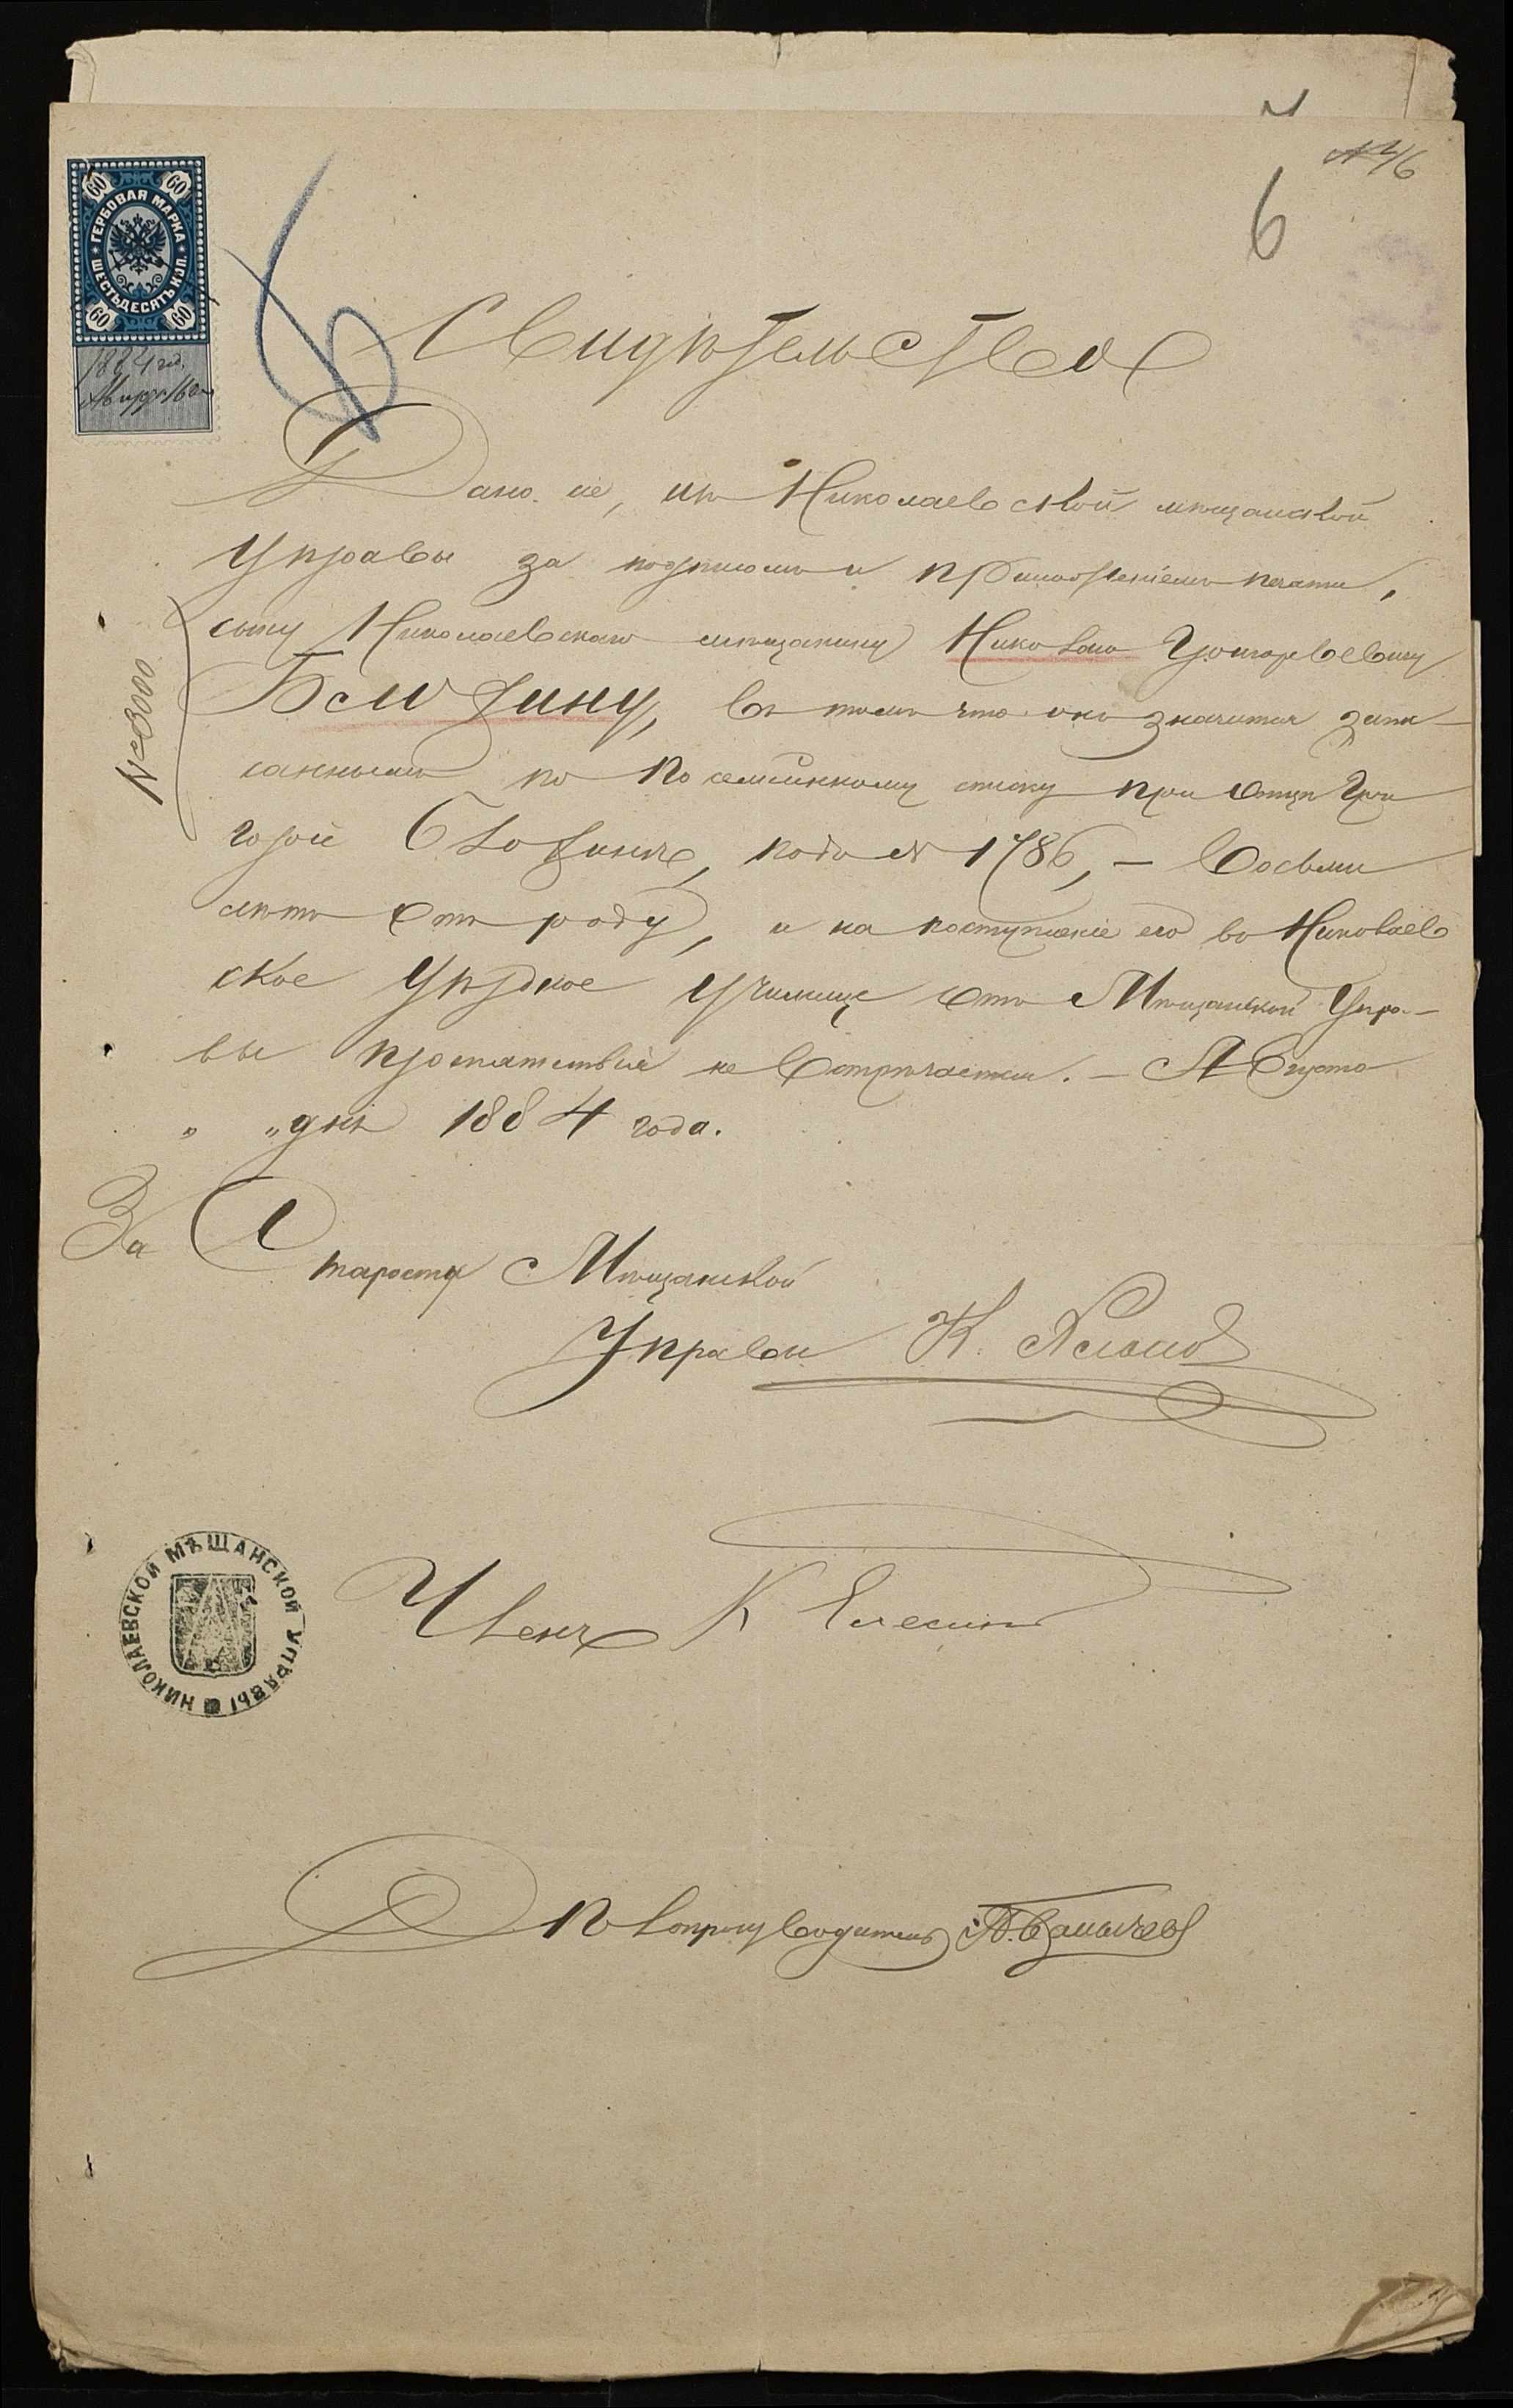 № 6
6
60 60
ГЕРБОВАЯ МАРКА
ШЕСТЬДЕСЯТЪ КОП.
60 60
1884 год.
Свидѣтельство
Дано сіе, изъ Николаевской мѣщанской
Управы за подписомъ и приложеніемъ печати,
сыну Николаевскаго мѣщанину Николаю Григорьевичу
Болотину, въ томъ что онъ значится запи-
саннымъ по посемейному списку при отцѣ Гри
горій подъ № 1786, — Восьми
лѣтъ отъ роду, и на поступленіе его въ Николаев
ское Уѣздное Училище отъ Мѣщанской Упра-
вы препятствій не встрѣчается. — Августа
" " дня 1884 года.
№ 3000
За Старосту Мѣщанской
Управы К.
НИКОЛАЕВСКОЙ МѢЩАНСКОЙ УПРАВЫ
Членъ К
Дѣлопроизводитель